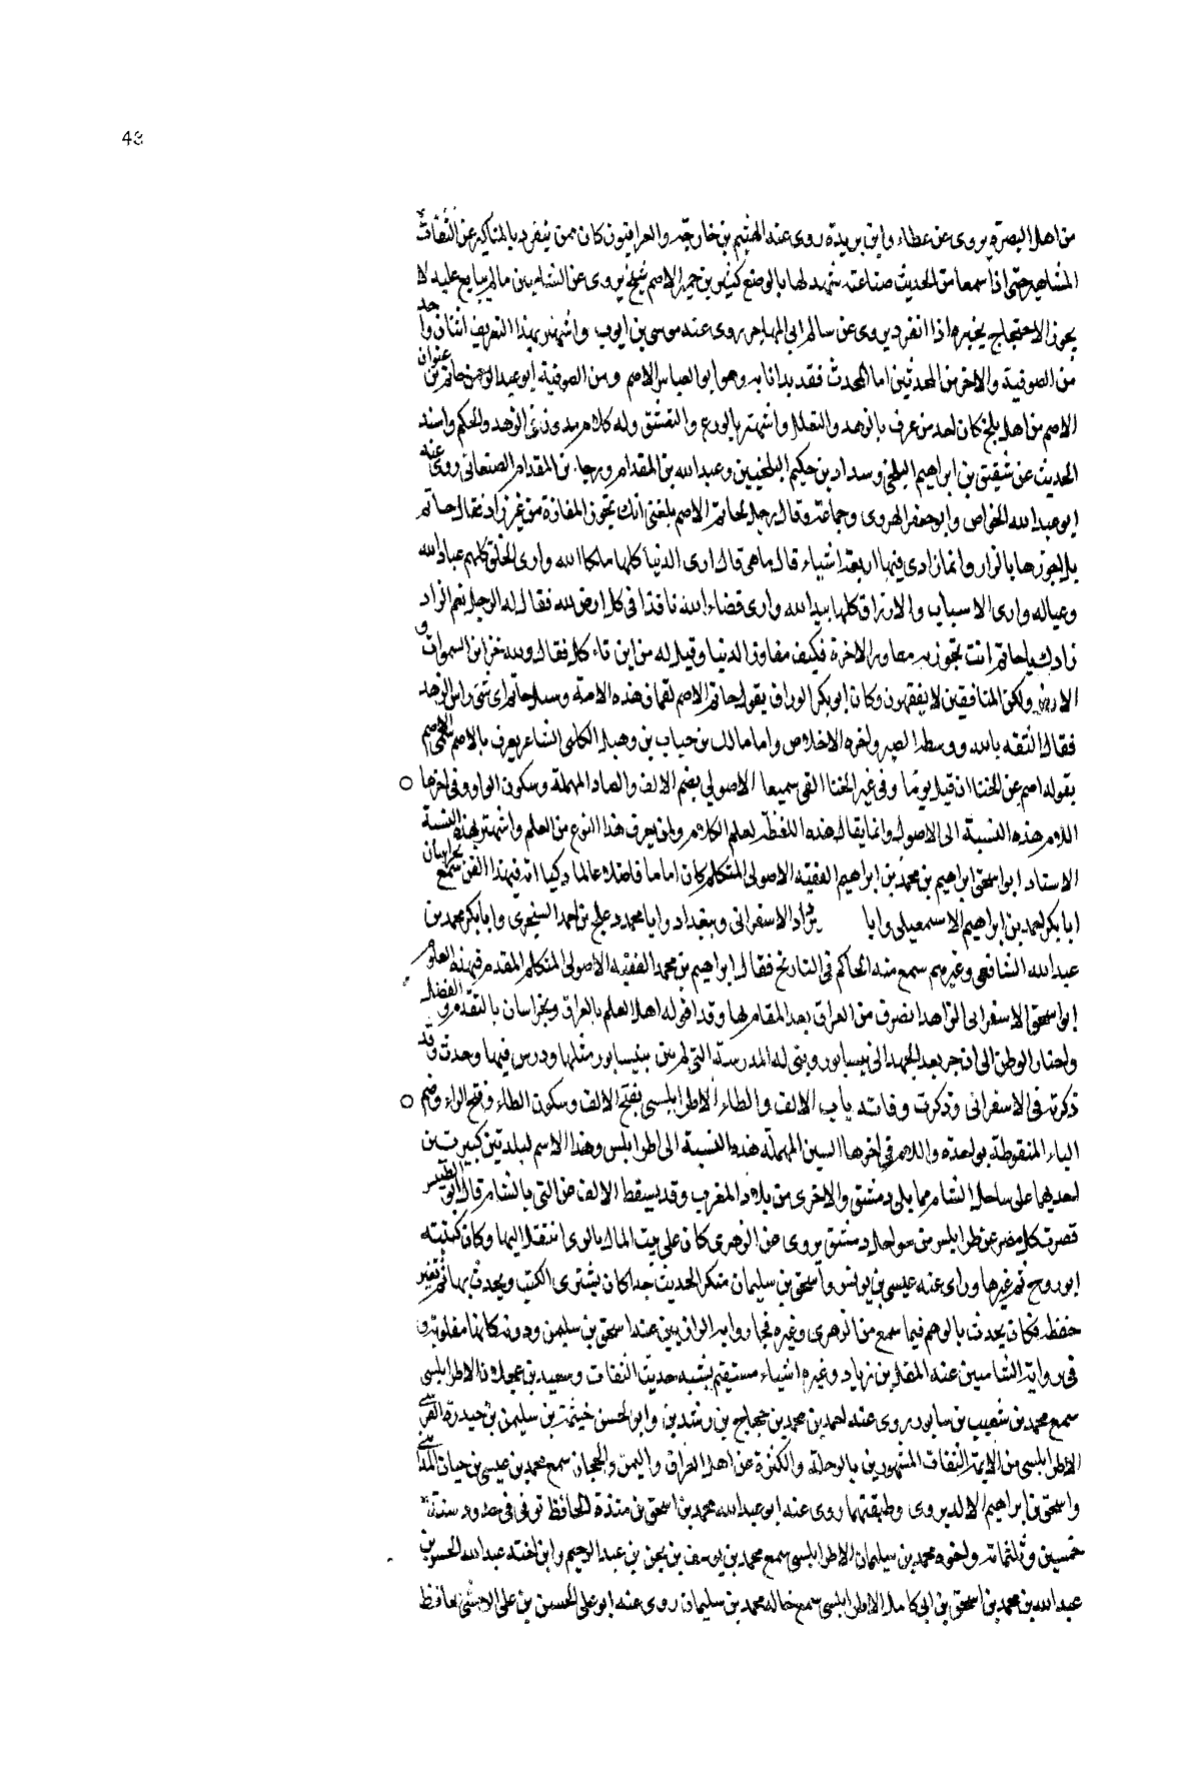 43
من اهل البصرة يروى عن عطاء وابن بريدة روى عنه الهيثم بن خارجة والعراقيون كان ممن ينفرد بالمناكير عن الثقات
المشاهير حتى اذا سمعها من الحديث صناعته شهد لها بالوضع كثير بن حمير الاصم شيخ يروى عن الشاميين ما لم يتابع عليه لا
يجوز الاحتجاج بخبره اذا انفرد يروى عن سالم ابى المهاجر روى عنه موسى بن ايوب واشتهر بهذا التعريف اثنان واحد
من الصوفية والاخر من المحدثين اما المحدث فقد بدانا به وهو ابو العباس الاصم ومن الصوفية ابو عبد الرحمن حاتم بن عنوان
الاصم من اهل بلخ كان احد من عرف بالزهد والتقلل واشتهر بالورع والتقشف وله كلام مدون فى الزهد والحكم واسند
الحديث عن شقيق بن ابراهيم البلخى وسداد بن حكيم البلخيين وعبد الله بن المقدام ورجاء بن المقدام الصنعانى روى عنه
ابو عبد الله الخواص وابو جعفر الهروى وجماعة وقال رجل لحاتم الاصم بلغنى انك تجوز المفازة من غير زاد فقال حاتم
بل اجوزها بالزاد وانما زادى فيها اربعة اشياء قال ما هى قال ارى الدنيا كلها ملكا لله وارى الخلق كلهم عباد الله
وعياله وارى الاسباب والارزاق كلها بيد الله وارى قضاء الله نافذا فى كل ارض لله فقال له الرجل نعم الزاد
زادك يا حاتم انت تجوز به مفاوز الاخرة فكيف مفاوز الدنيا وقيل له من اين تاكل فقال ولله خزائن السموات و
الارض ولكن المنافقين لا يفقهون وكان ابو بكر الوراق يقول حاتم الاصم لقمان هذه الامة وسئل حاتم اى شئ راس الزهد
فقال الثقة بالله ووسطه الصبر واخره الاخلاص واما مالك بن جناب بن وهبل الكلبى الشاعر يعرف بالاصم سمى الاصم
بقوله اصم عن الخنا ان قيل يوما وفى غير الخنا القى سميعا الاصولي بضم الالف والصاد المهملة وسكون الواو وفى اخرها
اللام هذه النسبة الى الاصول وانما يقال هذه اللفظة لعلم الكلام ولمن يعرف هذا النوع من العلم واشتهر بهذه النسبة
الاستاد ابو اسحق ابراهيم بن محمد بن ابراهيم الفقيه الاصولى المتكلم كان اماما فاضلا عالما فيهذا الفن سمع بخراسان
ابا بكر احمد بن ابراهيم الاسمعيلى وابا يزداد الاسفرانى وببغداد وابا محمد دعلج بن احمد السنجرى وابا بكر محمد بن
عبد الله الشافعى وغيرهم سمع منه الحاكم فى التاريخ فقال ابراهيم بن محمد الفقيه الاصولى المتكلم المقدم فيهذه العلوم
ابو اسحق الاسفرانى الزاهد انصرف من العراق بعد المقام بها وقد اقر له اهل العلم بالعراق وبخراسان بالتقدم و الفضل
واختار الوطن الى ان جر بعد الجهد الى نيسابور وبنى له المدرسة التى لم يبن بنيسابور مثلها ودرس فيها وحدث وقد
ذكرته فى الاسفرانى وذكرت وفاته باب الالف والطاء الاطرابلسى بفتح الالف وسكون الطاء وفتح الراء وضم
الباء المنقوطة بواحدة واللام فى اخرها السين المهملة هذه النسبة الى اطرابلس وهذا الاسم لبلدتين كبيرتين
احديهما على ساحل الشام مما يلى دمشق والاخرى من بلاد المغرب وقد يسقط الالف عن التى بالشام قال ابو الطيب
قصرت كل مصر عن طرابلس من سواحل دمشق يروى عن الزهرى كان على بيت المال بالرى انتقل اليها وكان كنيته
ابو روح ثم غيرها روى عنه عيسى بن يونس واسحق بن سليمان منكر الحديث جدا كان يشترى الكتب ويحدث بها ثم تغير
حفظه فكان يحدث بالوهم فيما سمع من الزهرى وغيره فجا رواية الرازيين عنه اسحق بن سليمن ودونه كانها مقلوبة و
فى رواية الشاميين عنه الهقل بن زياد وغيره اشياء مستقيم يشبه حديث الثقات وسعيد بن عجلان الاطرابلسى
سمع محمد بن شعيب بن سابور روى عنه احمد بن محمد بن حجاج بن رشدين وابو الحسن خيثمة بن سليمن بن حيدرة القرشى
الاطرابلسى من الايمة الثقات المشهورين بالرحلة والكثرة عن اهل العراق واليمن والحجاز سمع محمد بن عيسى بن حيان المدائنى
واسحق بن ابراهيم الدبروى وطبقتهما روى عنه ابو عبد الله محمد بن اسحق بن مندة الحافظ توفى فى حدود سنة
خمسين وثلثمائة واخوه محمد بن سليمان الاطرابلسى سمع محمد بن يوسف بن بحر بن عبد الرحيم وابن اخته عبد الله الحسين بن
عبد الله بن محمد بن اسحق بن ابى كامل الاطرابلسى سمع خاله محمد بن سليمان روى عنه ابو على الحسن بن على حافظ